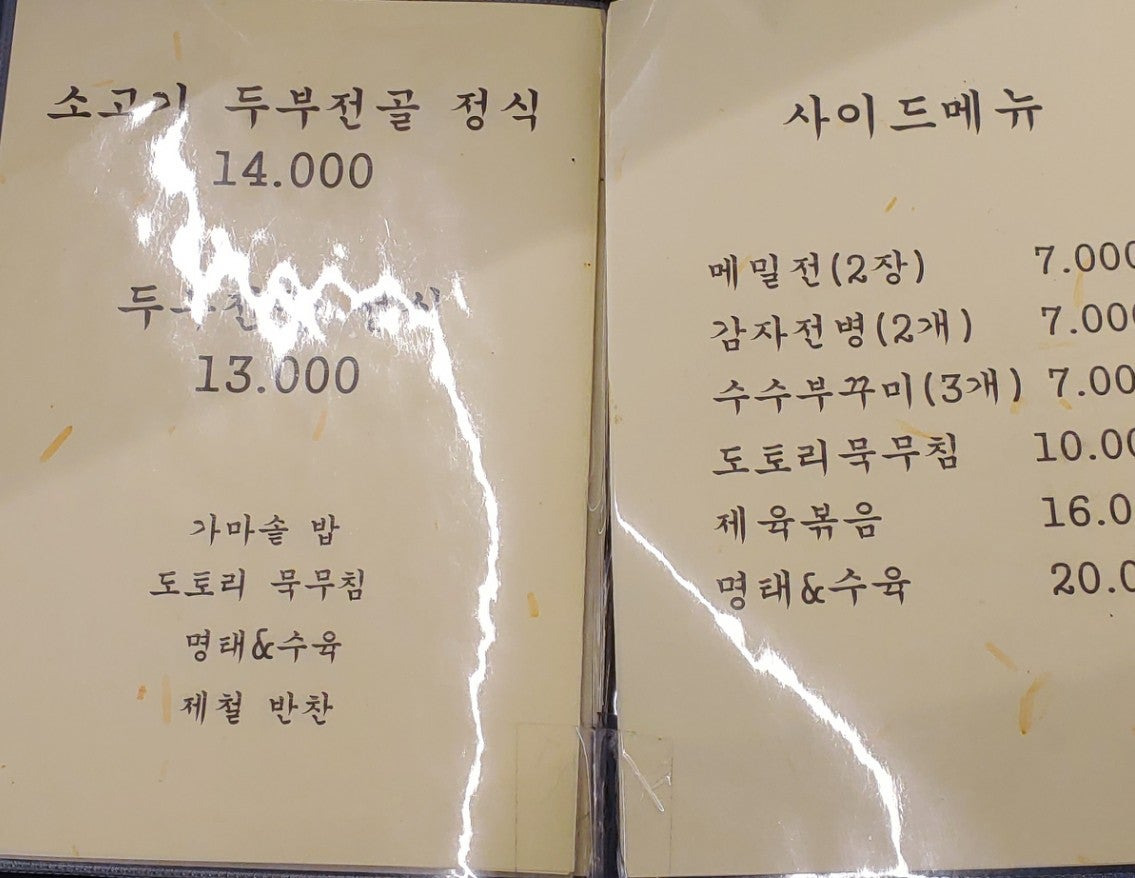 소고기 두부전골 정식
14.000
13.000
가마솥 밥
도토리 묵무침
명태&수육
제철 반찬
사이드메뉴
메밀전(2장) 7.000
감자전병(2개) 7.000
수수부꾸미(3개) 7.00
도토리묵무침 10.00
제육볶음 16.0
명태&수육 20.0